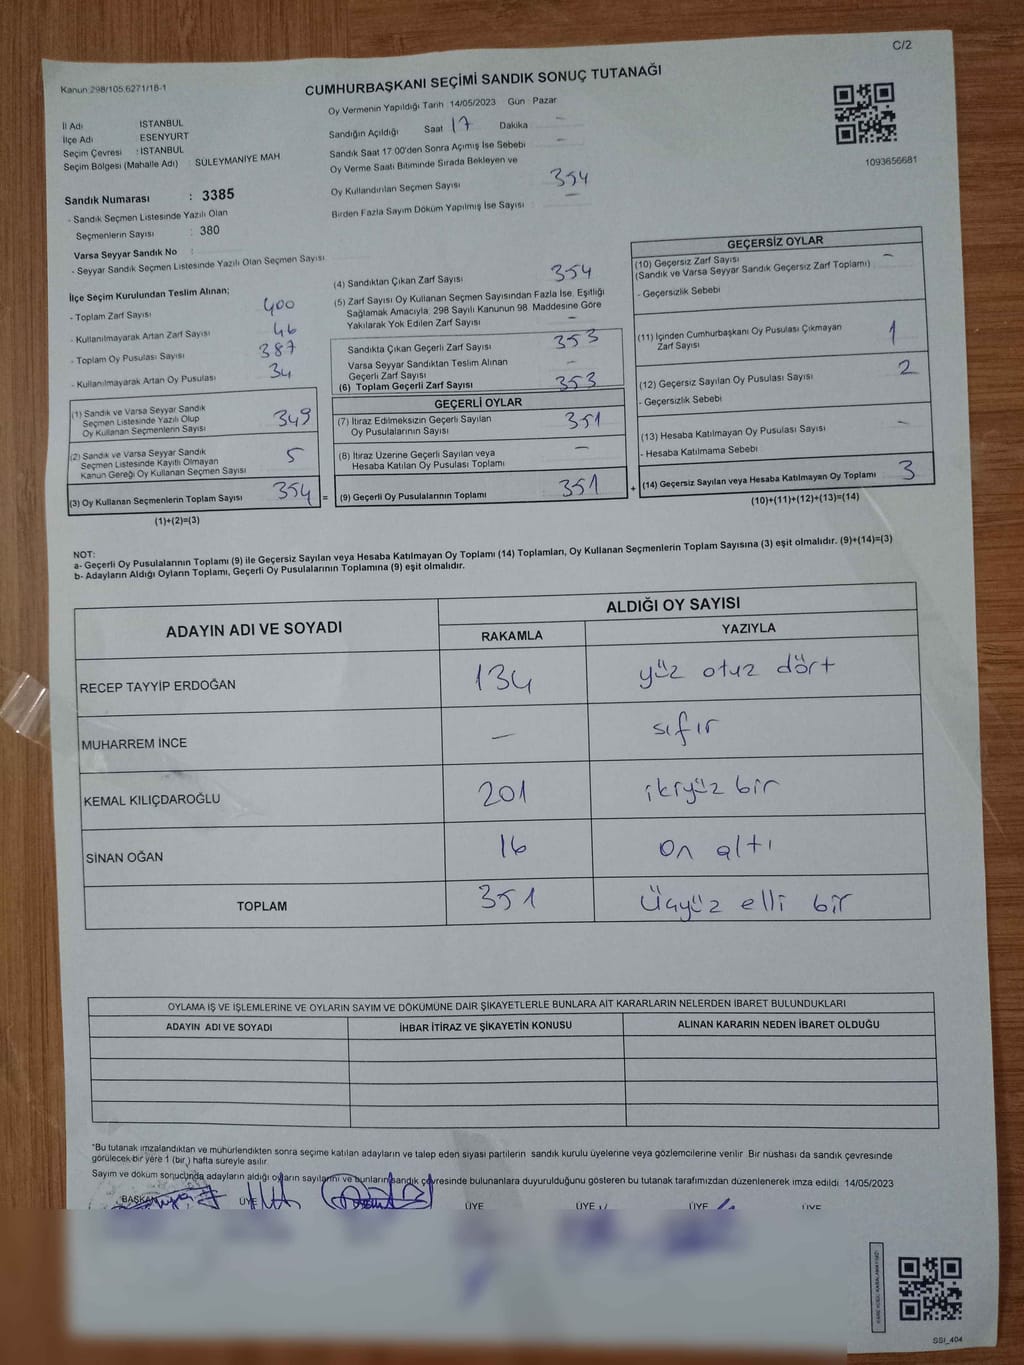 C/2
Kanun 298/105 6271/18-1
CUMHURBAŞKANI SEÇİMİ SANDIK SONUÇ TUTANAĞI
İl Adı İSTANBUL
İlçe Adı ESENYURT
Seçim Çevresi : İSTANBUL
Seçim Bölgesi (Mahalle Adı) : SÜLEYMANİYE MAH
Oy Vermenin Yapıldığı Tarih 14/05/2023 Gün : Pazar
Sandığın Açıldığı Saat 17 Dakika –
Sandık Saat 17:00'den Sonra Açımış İse Sebebi –
Oy Verme Saati Bitiminde Sırada Bekleyen ve
Oy Kullandırılan Seçmen Sayısı 354
Birden Fazla Sayım Döküm Yapılmış İse Sayısı –
1093656681
Sandık Numarası : 3385
- Sandık Seçmen Listesinde Yazılı Olan
Seçmenlerin Sayısı : 380
Varsa Seyyar Sandık No :
- Seyyar Sandık Seçmen Listesinde Yazılı Olan Seçmen Sayısı
İlçe Seçim Kurulundan Teslim Alınan;
- Toplam Zarf Sayısı 400
- Kullanılmayarak Artan Zarf Sayısı 46
- Toplam Oy Pusulası Sayısı 387
- Kullanılmayarak Artan Oy Pusulası 34
(1) Sandık ve Varsa Seyyar Sandık
Seçmen Listesinde Yazılı Olup
Oy Kullanan Seçmenlerin Sayısı 349
(2) Sandık ve Varsa Seyyar Sandık
Seçmen Listesinde Kayıtlı Olmayan
Kanun Gereği Oy Kullanan Seçmen Sayısı 5
(3) Oy Kullanan Seçmenlerin Toplam Sayısı 354 =
(1)+(2)=(3)
(4) Sandıktan Çıkan Zarf Sayısı 354
(5) Zarf Sayısı Oy Kullanan Seçmen Sayısından Fazla İse, Eşitliği
Sağlamak Amacıyla; 298 Sayılı Kanunun 98. Maddesine Göre
Yakılarak Yok Edilen Zarf Sayısı –
Sandıkta Çıkan Geçerli Zarf Sayısı 353
Varsa Seyyar Sandıktan Teslim Alınan
Geçerli Zarf Sayısı –
(6) Toplam Geçerli Zarf Sayısı 353
GEÇERLİ OYLAR
(7) İtiraz Edilmeksizin Geçerli Sayılan
Oy Pusulalarının Sayısı 351
(8) İtiraz Üzerine Geçerli Sayılan veya
Hesaba Katılan Oy Pusulası Toplamı –
(9) Geçerli Oy Pusulalarının Toplamı 351 +
GEÇERSİZ OYLAR
(10) Geçersiz Zarf Sayısı –
(Sandık ve Varsa Seyyar Sandık Geçersiz Zarf Toplamı)
- Geçersizlik Sebebi
(11) İçinden Cumhurbaşkanı Oy Pusulası Çıkmayan
Zarf Sayısı 1
(12) Geçersiz Sayılan Oy Pusulası Sayısı 2
- Geçersizlik Sebebi
(13) Hesaba Katılmayan Oy Pusulası Sayısı –
- Hesaba Katılmama Sebebi
(14) Geçersiz Sayılan veya Hesaba Katılmayan Oy Toplamı 3
(10)+(11)+(12)+(13)=(14)
NOT:
a- Geçerli Oy Pusulalarının Toplamı (9) ile Geçersiz Sayılan veya Hesaba Katılmayan Oy Toplamı (14) Toplamları, Oy Kullanan Seçmenlerin Toplam Sayısına (3) eşit olmalıdır. (9)+(14)=(3)
b- Adayların Aldığı Oyların Toplamı, Geçerli Oy Pusulalarının Toplamına (9) eşit olmalıdır.
ADAYIN ADI VE SOYADI ALDIĞI OY SAYISI
RAKAMLA YAZIYLA
RECEP TAYYİP ERDOĞAN 134 yüz otuz dört
MUHARREM İNCE – sıfır
KEMAL KILIÇDAROĞLU 201 ikiyüz bir
SİNAN OĞAN 16 on altı
TOPLAM 351 Üçyüz elli bir
OYLAMA İŞ VE İŞLEMLERİNE VE OYLARIN SAYIM VE DÖKÜMÜNE DAİR ŞİKAYETLERLE BUNLARA AİT KARARLARIN NELERDEN İBARET BULUNDUKLARI
ADAYIN ADI VE SOYADI İHBAR İTİRAZ VE ŞİKAYETİN KONUSU ALINAN KARARIN NEDEN İBARET OLDUĞU
*Bu tutanak imzalandıktan ve mühürlendikten sonra seçime katılan adayların ve talep eden siyasi partilerin sandık kurulu üyelerine veya gözlemcilerine verilir. Bir nüshası da sandık çevresinde
görülecek bir yere 1 (bir ) hafta süreyle asılır.
Sayım ve döküm sonucunda adayların aldığı oyların sayılarını ve bunların sandık çevresinde bulunanlara duyurulduğunu gösteren bu tutanak tarafımızdan düzenlenerek imza edildi. 14/05/2023
BAŞKAN ÜYE ÜYE ÜYE ÜYE ÜYE
SSI_404